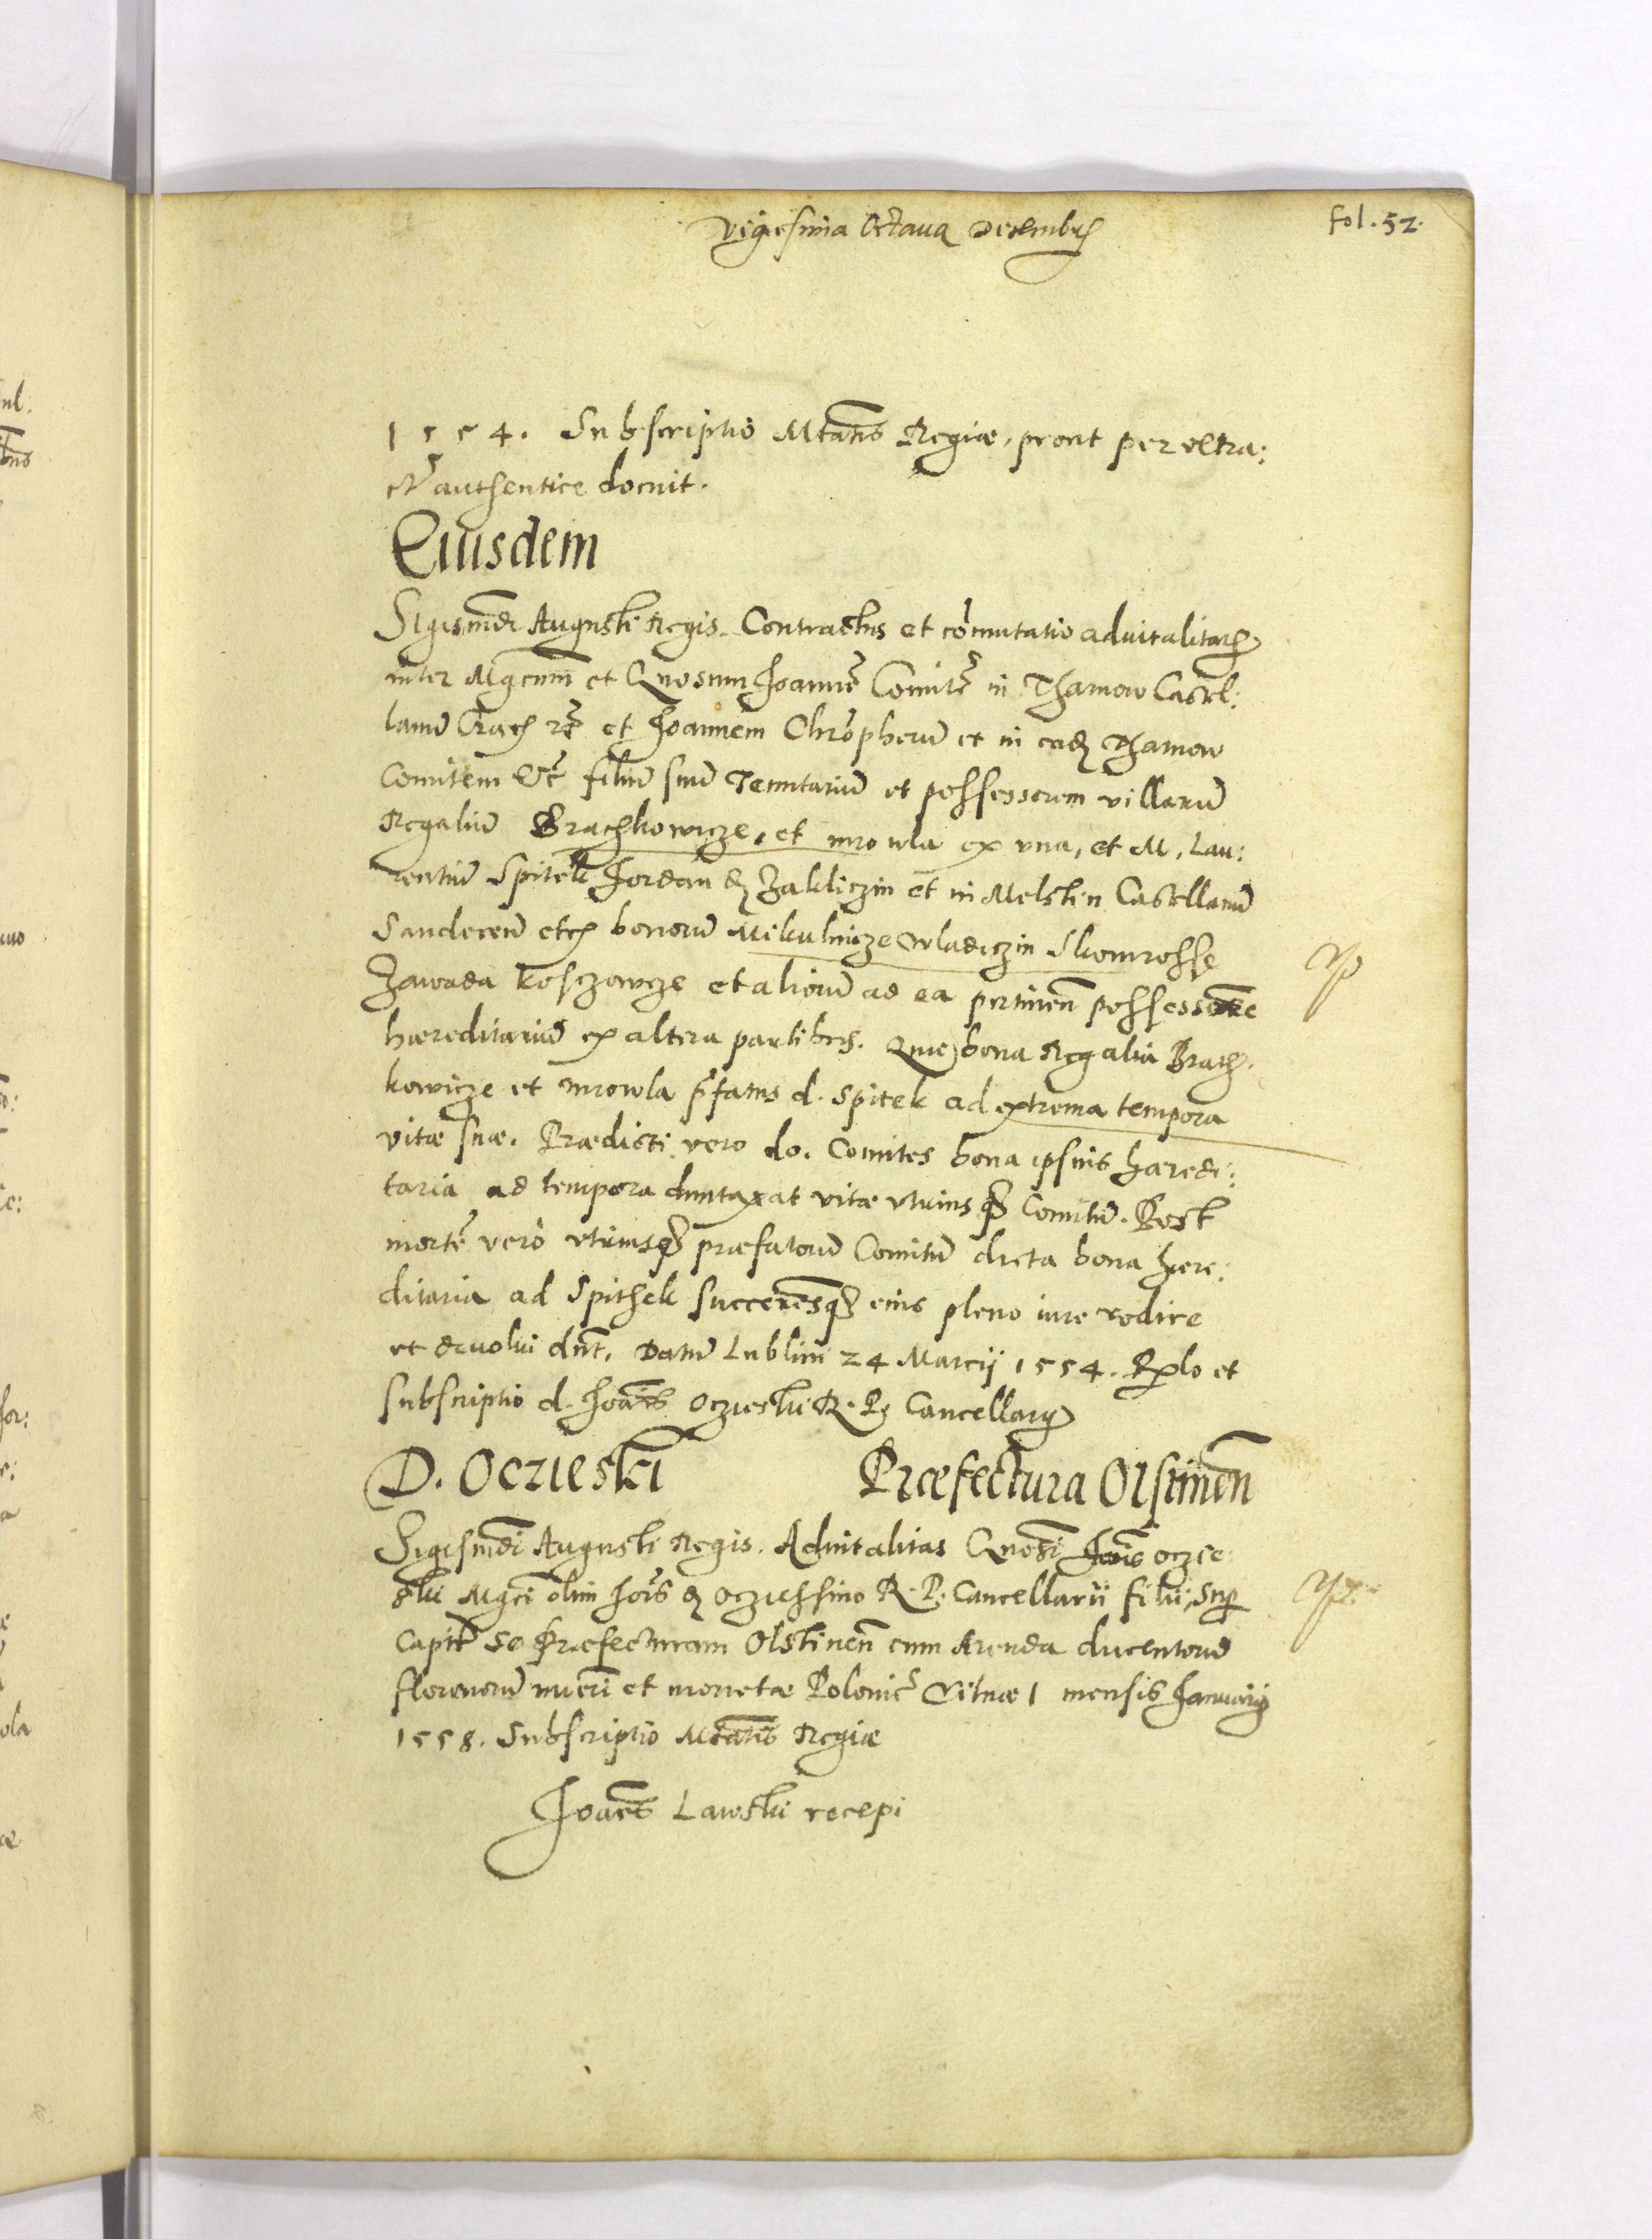 Vigesima Octaua Decembris
Fol. 52.
1554. Subscriptio Mtatis Regiæ, prout per extra:
ctū authentice docuit.
Eiusdem
Sigismūdi Augusti Regis. Contractus et cōmutatio aduitalitatis
inter Mgcum et Gnosum Joannē Comitē in Tharnow Castel:
lanū Crac. etc et Joannem Chrōpherū et in eadē Tharnow
Comitem etc filiū suū Tenutariū et possessorem villarū
Regaliū Brachkowicze, et mrowla ex vna, et M. Lau:
rentiū Spitek Jordan de Zakliczin et in Melstin Castellanū
Sandecen etc bonorū Mikulnicze Wladiczin Skomrosse
Zawada Kosczowcze et aliorū ad ea pertinen possessorē
hæreditariū ex altera partibus. Quæ bona Regalia Brach:
kowicze et mrowla p̄fatus d. Spitek ad extrema tempora
vitæ suæ. Prædicti vero do. Comites bona ipsius hæredi:
taria ad tempora duntaxat vitæ vtriusq3 Comitū. Post
mortē vero vtriusq3 præfatorū Comitū dicta bona hære:
ditaria ad Spithek succeresq3 eius pleno iure redire
et deuolui dnt. Datū Lublini 24 Marcij 1554. Rlo et
subscriptio d. Joānis Oczieski R. P. Cancellarij
D. Oczieski Præfectura Olstinen
Sigismūdi Augusti Regis. Aduitalitas Gnosi Joānis Oczie:
ski Mgci olim Joīs de Oczieschino R. P. Cancellarii filii, sup
Capit se Præfecturam Olstinen cum Arenda ducentorū
florenorū nūeri et monetæ Polonic Vilnæ 1 mensis Januarij
1558. Subscriptio Mtatis Regiæ
Joānes Lawski recepi